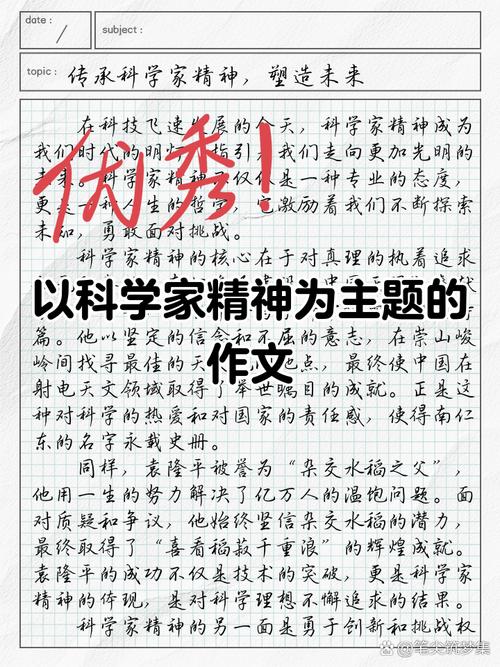 date:
subject:
topic: 传承科学家精神，塑造未来
在科技飞速发展的今天，科学家精神成为
我们时代的明灯 指引 我们走向更加光明的
未来。科学家精神不仅仅是一种专业的态度，
更是一种人生的哲学，它激励着我们不断探索
未知，勇敢面对挑战。
优秀！
科学家精神的核心在于对真理的执着追求
以科学家精神为主题的
作文
篇。他以坚定的信念和不屈的意志，在崇山峻
岭间找寻最佳的天 地点，最终使中国在
射电天文领域取得了举世瞩目的成就。正是这
种对科学的热爱和对国家的责任感，使得南仁
东的名字永载史册。
同样，袁隆平被誉为“杂交水稻之父”，
他用一生的努力解决了亿万人的温饱问题。面
对质疑和争议，他始终坚信杂交水稻的潜力，
最终取得了“喜看稻菽千重浪”的辉煌成就。
袁隆平的成功不仅是技术的突破，更是科学家
精神的体现，是对科学理想不懈追求的结果。
科学家精神的另一面是勇于创新和挑战权
@笔尖筑梦集